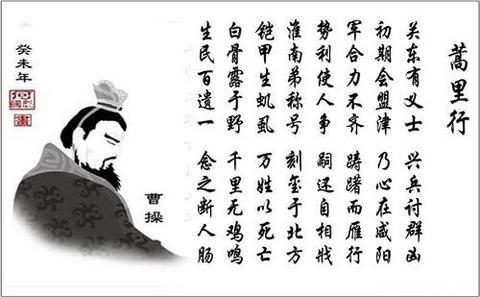 蒿里行
关东有义士 兴兵讨群凶
初期会盟津 乃心在咸阳
军合力不齐 踌躇而雁行
势利使人争 嗣还自相戕
淮南弟称号 刻玺于北方
铠甲生虮虱 万姓以死亡
白骨露于野 千里无鸡鸣
生民百遗一 念之断人肠
曹操
癸未年